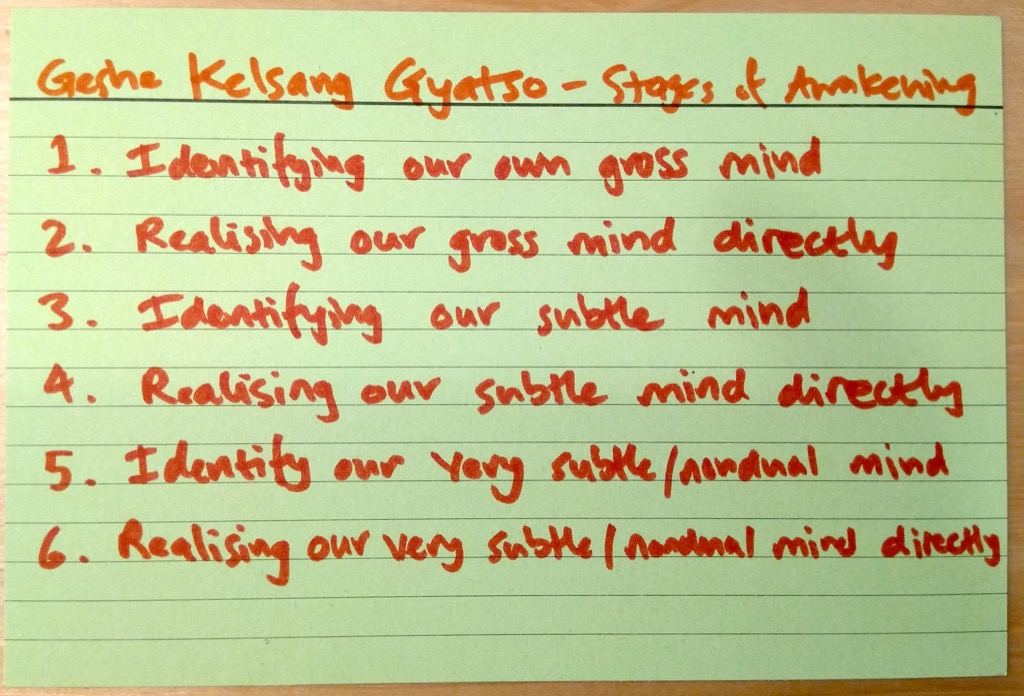 Geshe Kelsang Gyatso - Stages of Awakening
1. Identifying our own gross mind
2. Realising our gross mind directly
3. Identifying our subtle mind
4. Realising our subtle mind directly
5. Identify our very subtle/nondual mind
6. Realising our very subtle/nondual mind directly